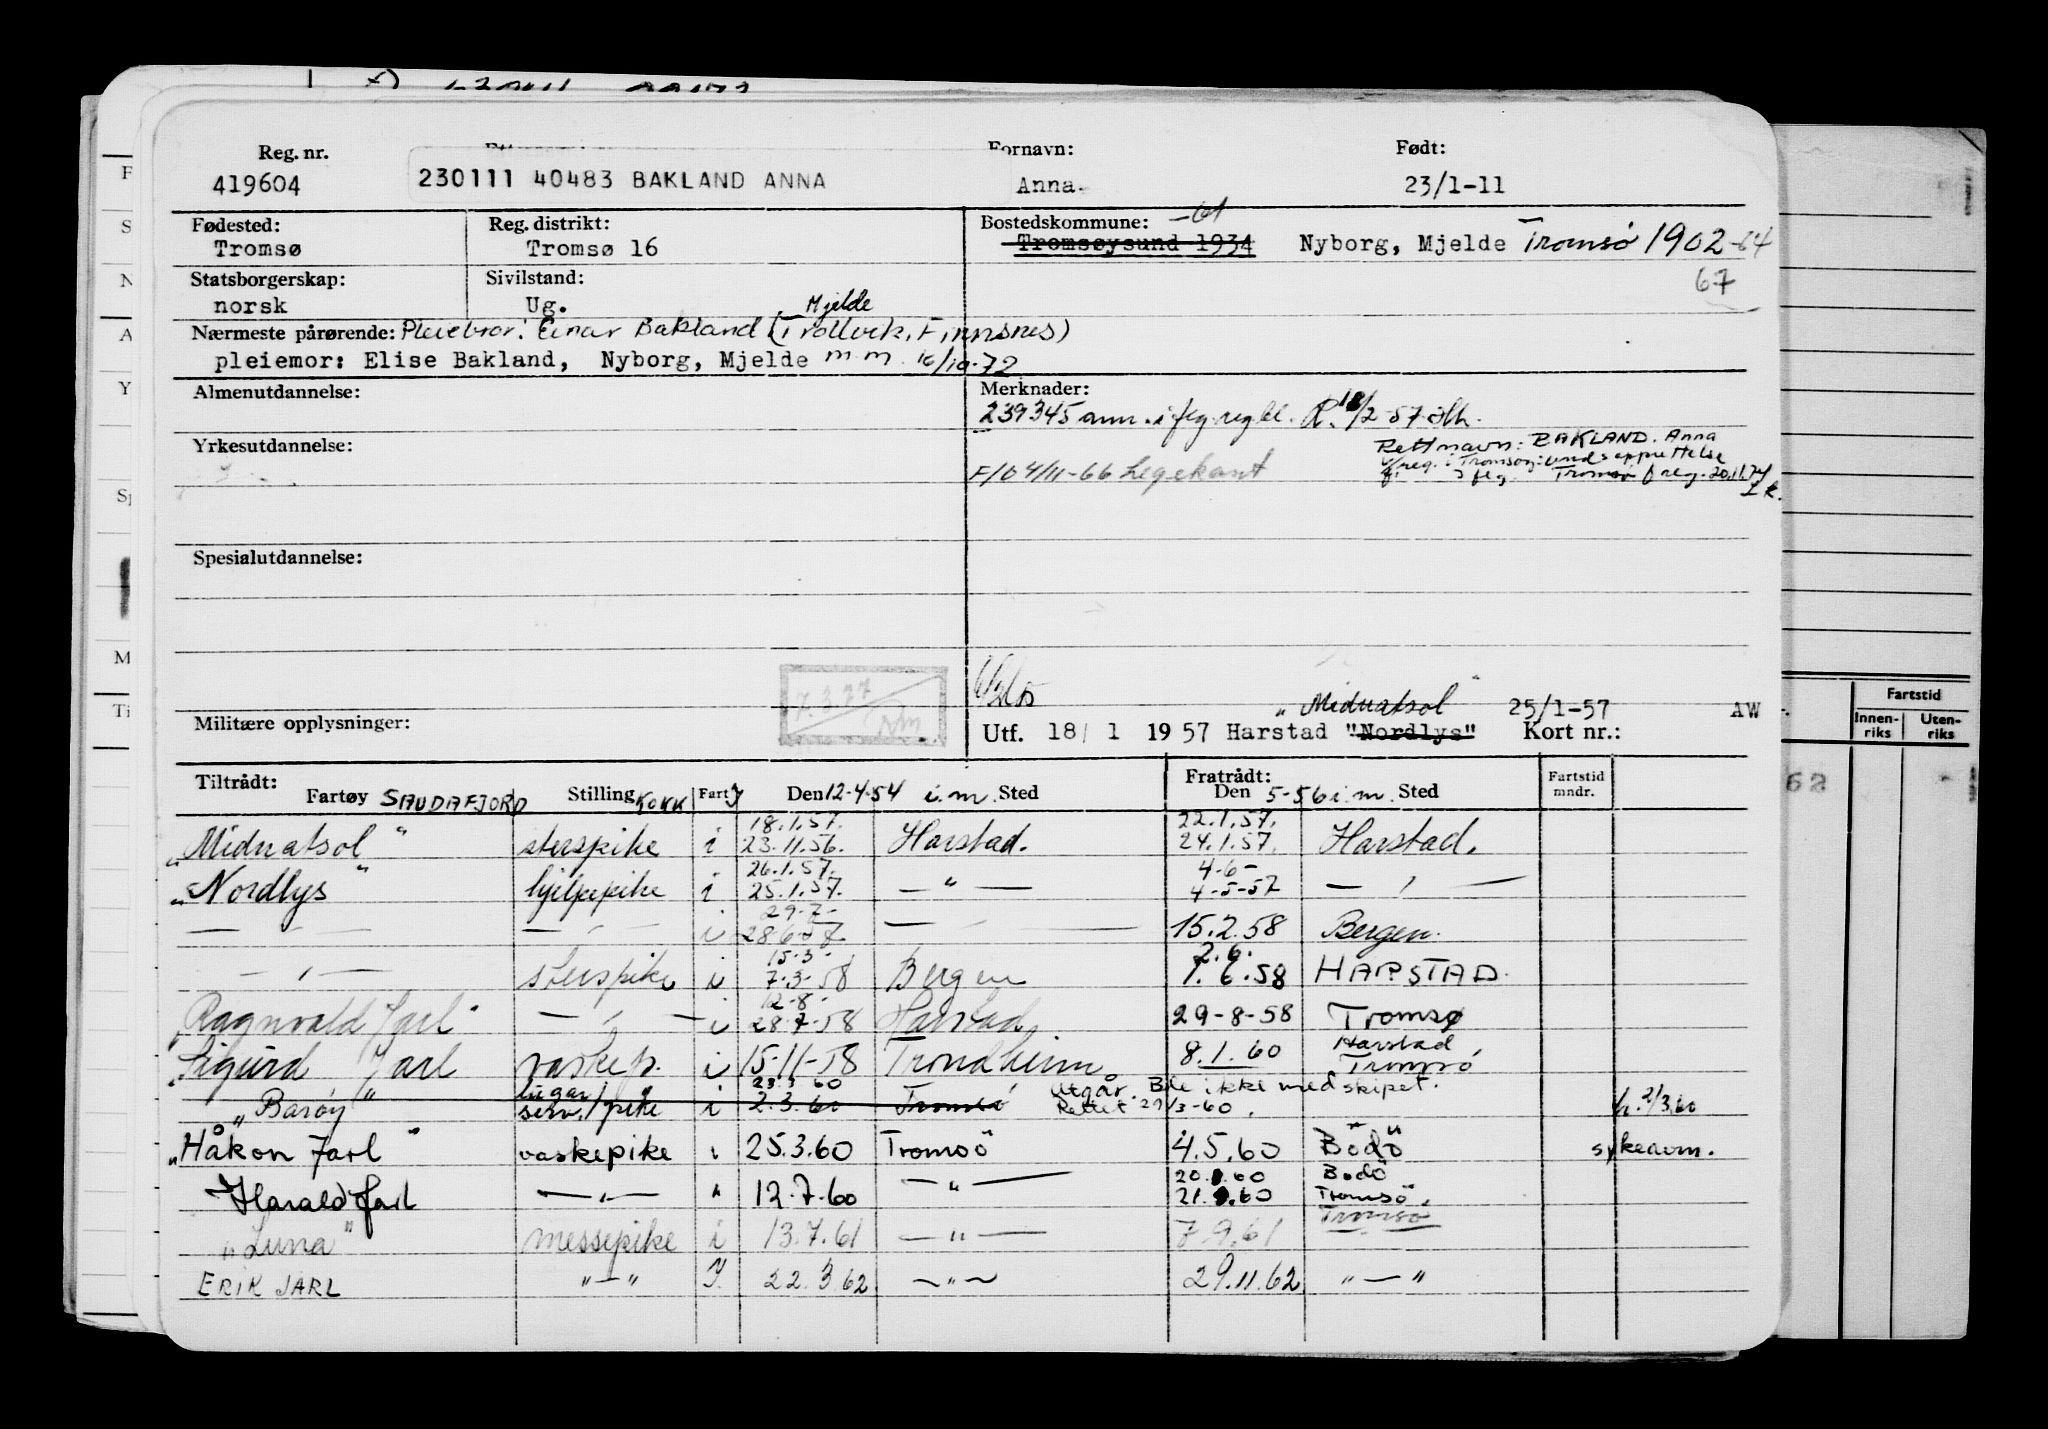 Reg. nr. Fornavn: Født:
419604 230111 40483 BAKLAND ANNA Anna 23/1-11
Fødested: Reg. distrikt: Bostedskommune: -61
Tromsø Tromsø 16 Tromsøysund 1934 Nyborg, Mjelde Tromsø 1902-64
67
Statsborgerskap: Sivilstand:
norsk Ug.
Mjelde
Nærmeste pårørende: Pleiebror: Einar Bakland (Trollvik, Finnsnes)
pleiemor: Elise Bakland, Nyborg, Mjelde m.m. 16/10-72
Almenutdannelse: Merknader:
239345 ann. i
Yrkesutdannelse: Rett navn: BAKLAND. Anna
F/O 4/11-66 Legekant
Spesialutdannelse:
7.3.77
"Midnatsol" 25/1-57 AW
Militære opplysninger: Utf. 18/ 1 1957 Harstad "Nordlys" Kort nr.:
Tiltrådt: Fratrådt: Fartstid mndr.
Fartøy SAUDAFJORD Stilling KOKK Fart Y Den 12-4-54 i.m. Sted Den 5-56 i.m. Sted
18.1.57. 22.1.57.
"Midnatsol" sterspike i 23.11.56. Harstad. 24.1.57. Harstad.
26.1.57. 4-6-
"Nordlys" hjelpepike i 25.1.57. — " — 4-5-57 — " —
29-7-
— " — — " — i — " — 15.2.58 Bergen.
15-3- 2.6.
— " — sterspike i 7-3-58 Bergen 58 HARSTAD.
12-8-
"Ragnvald Jarl" — " — i 28-7-58 Harstad, 29-8-58 Tromsø
"Sigurd Jarl" vaskep. i 15-11-58 Trondheim 8.1.60 Harstad Tromsö
23.3 60 Utgår. Ble ikke med skipet.
"Barøy" lugar/serv. pike i 2.3.60 Tromsö Rettet 29/3-60. 2/3.60
"Håkon Jarl" vaskepike i 25.3.60 Tromsö 4.5.60 Bodö sykeavm.
20. .60 Bodö
Harald Jarl — " — " 12.7.60 — " — 21. .60 Tromsö.
Tromsø
"Luna" messepike i 13.7.61 — " — 7.9.61
ERIK JARL "—" Y. 22.3.62 —"— 29.11.62 "—"
Fartstid
Innenriks Utenriks
62